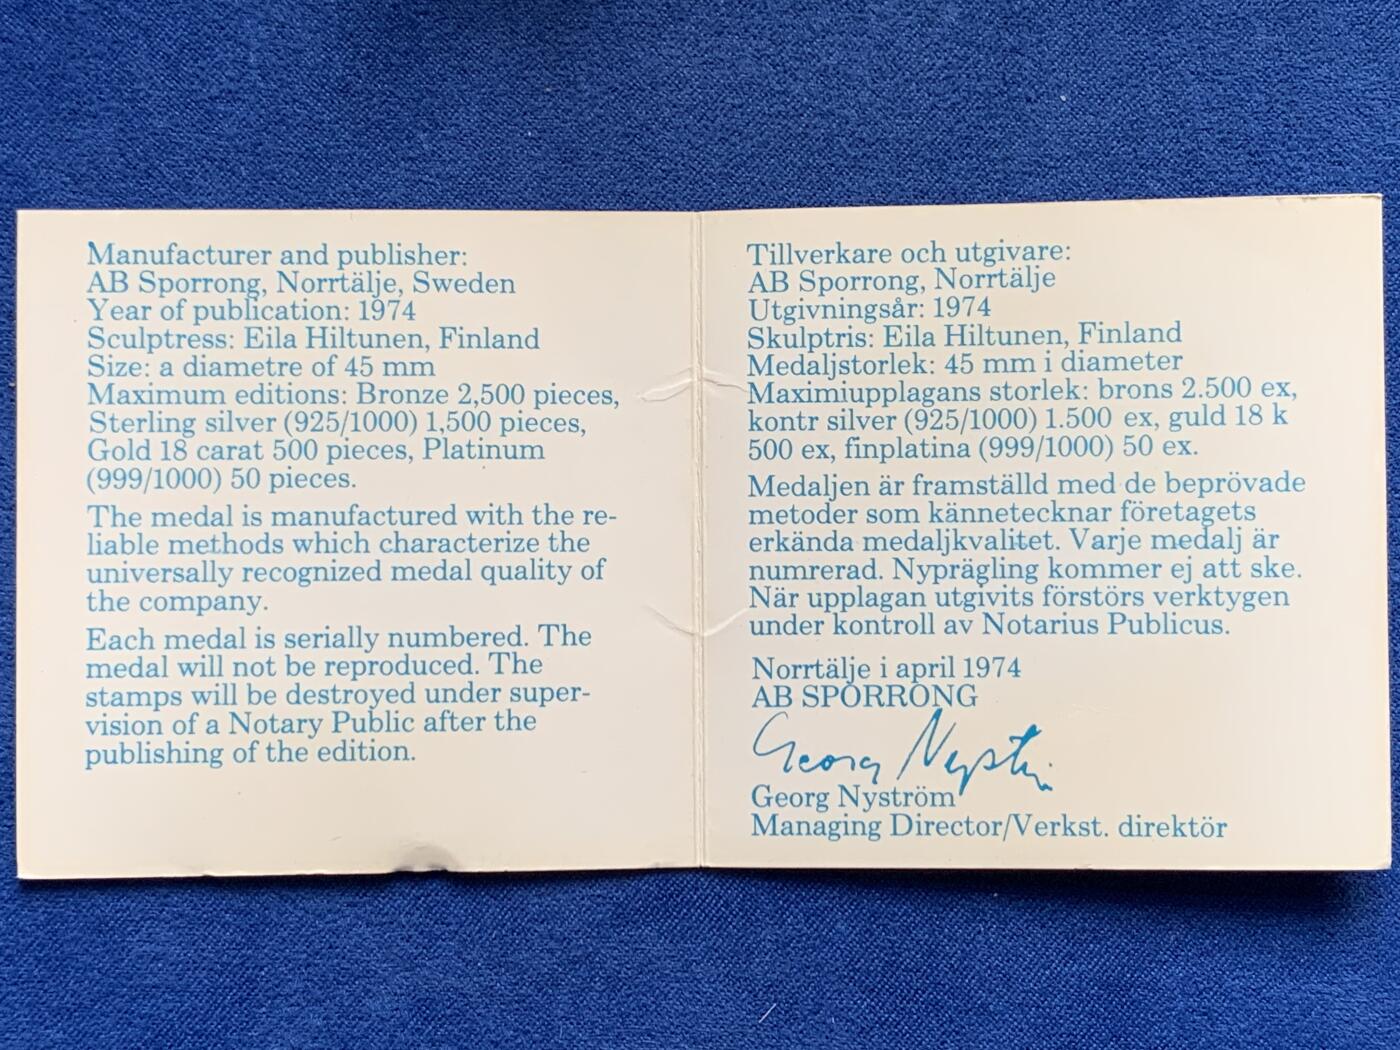 Manufacturer and publisher:
AB Sporrong, Norrtälje, Sweden
Year of publication: 1974
Sculptress: Eila Hiltunen, Finland
Size: a diametre of 45 mm
Maximum editions: Bronze 2,500 pieces,
Sterling silver (925/1000) 1,500 pieces,
Gold 18 carat 500 pieces, Platinum
(999/1000) 50 pieces.
The medal is manufactured with the re-
liable methods which characterize the
universally recognized medal quality of
the company.
Each medal is serially numbered. The
medal will not be reproduced. The
stamps will be destroyed under super-
vision of a Notary Public after the
publishing of the edition.
Tillverkare och utgivare:
AB Sporrong, Norrtälje
Utgivningsår: 1974
Skulptris: Eila Hiltunen, Finland
Medaljstorlek: 45 mm i diameter
Maximiupplagans storlek: brons 2.500 ex,
kontr silver (925/1000) 1.500 ex, guld 18 k
500 ex, finplatina (999/1000) 50 ex.
Medaljen är framställd med de beprövade
metoder som kännetecknar företagets
erkända medaljkvalitet. Varje medalj är
numrerad. Nyprägling kommer ej att ske.
När upplagan utgivits förstörs verktygen
under kontroll av Notarius Publicus.
Norrtälje i april 1974
AB SPORRONG
Georg Nyström
Georg Nyström
Managing Director/Verkst. direktör